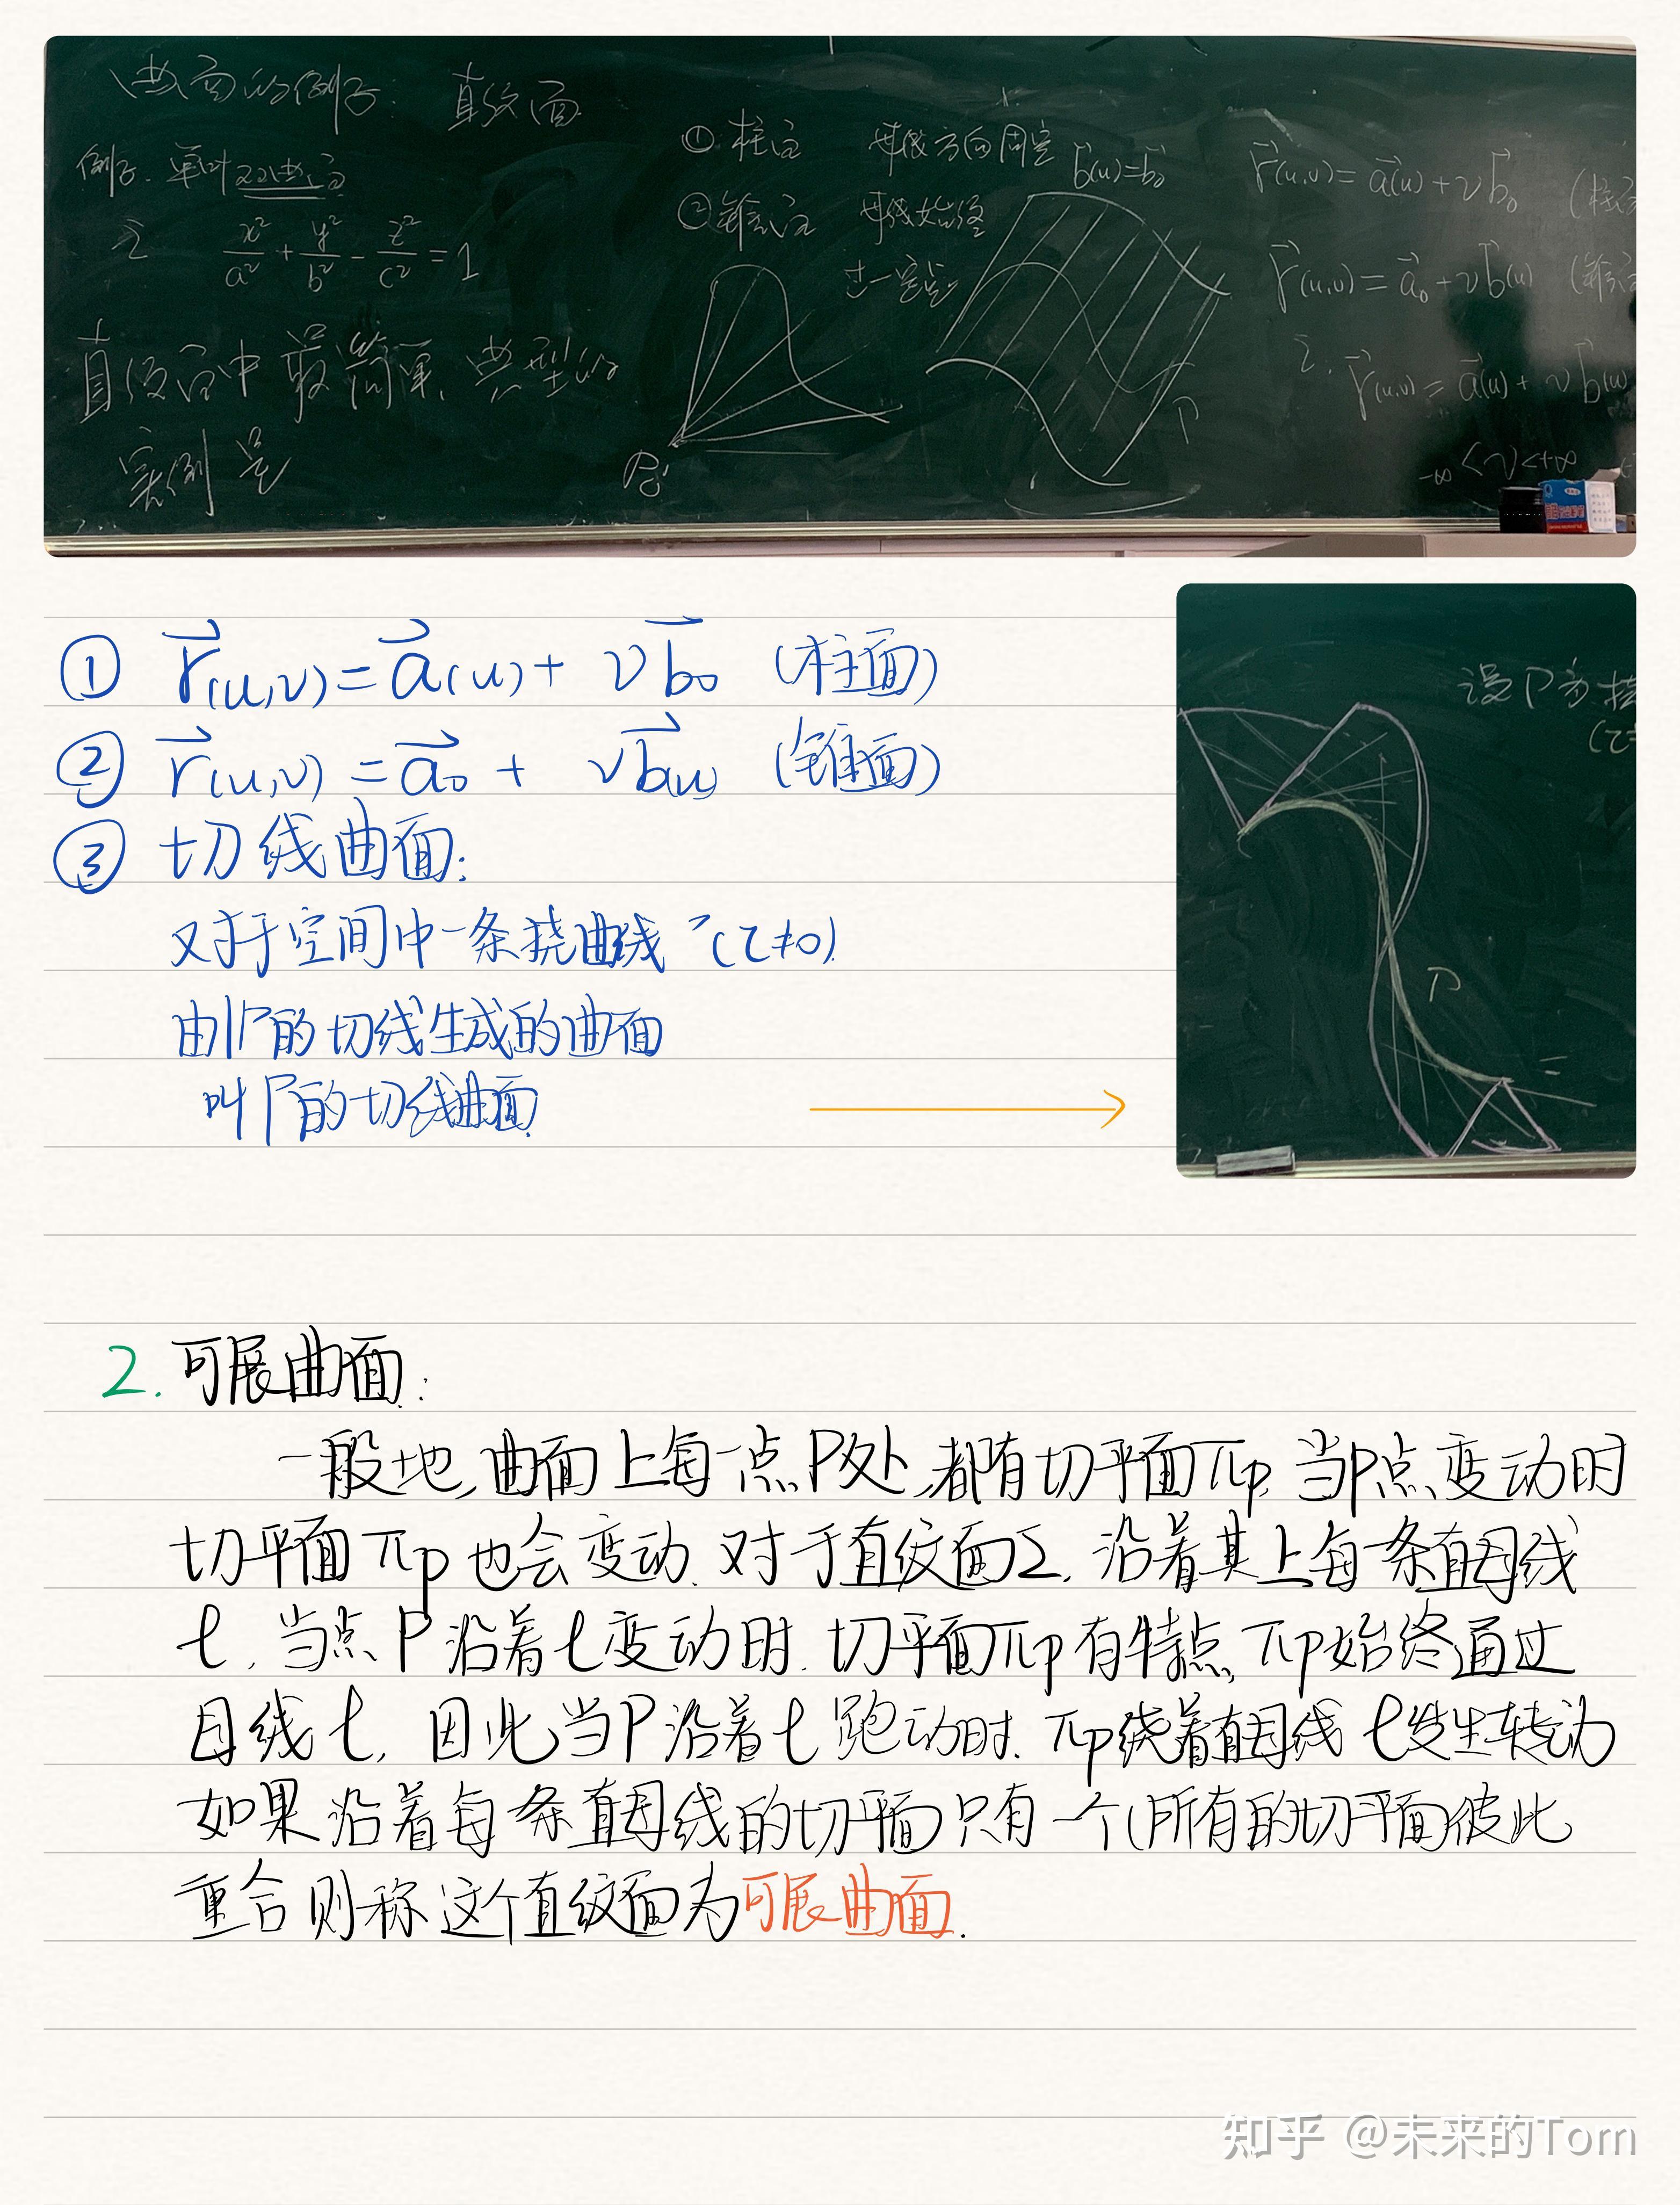 曲面的例子: 直纹面
例子. 单叶双曲面
Σ x²/a² + y²/b² - z²/c² = 1
直纹面中最简单、典型的
实例是
① 柱面 母线方向固定 b⃗(u)=b⃗₀
② 锥面 母线始终
过一定点
P₀
Γ
r⃗(u,v)=a⃗(u)+v b⃗₀ (柱面
r⃗(u,v)=a⃗₀+v b⃗(u) (锥面
Σ: r⃗(u,v)=a⃗(u)+v b⃗(u)
-∞<v<+∞
① r⃗(u,v)=a⃗(u)+ v b⃗₀ (柱面)
② r⃗(u,v)=a⃗₀+ v b⃗(u) (锥面)
③ 切线曲面:
对于空间中一条挠曲线 Γ(τ≠0)
由Γ的切线生成的曲面
叫Γ的切线曲面.
设Γ为挠
(τ≠
Γ
2. 可展曲面:
一般地,曲面上每一点P处,都有切平面πp. 当P点变动时
切平面πp也会变动. 对于直纹面Σ, 沿着其上每条直母线
l, 当点P沿着l变动时. 切平面πp有特点, πp始终通过
母线l, 因此当P沿着l跑动时. πp绕着直母线l发生转动
如果沿着每条直母线的切平面只有一个(所有的切平面彼此
重合则称这个直纹面为可展曲面.
知乎 @未来的Tom